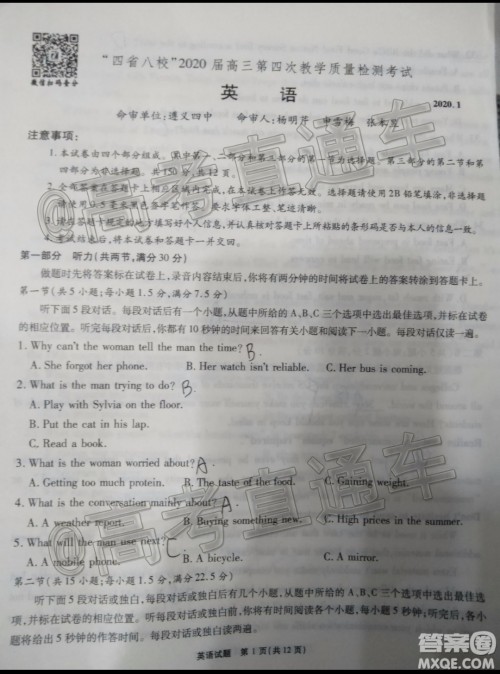 微信扫码查分
"四省八校"2020届高三第四次教学质量检测考试
英 语
2020.1
命审单位:遵义四中 命审人:杨明芹
注意事项:
1.本试卷由四个部分组成。其中第一、二部分和第三部分的第一节为选择题。第三部分的第二节和第四部分为非选择题。共150分,共12页。
2.全部答案在答题卡上相应区域内完成,在本试卷上作答无效。选择题请使用2B铅笔填涂,非选择题请使用
3.请在答题卡规定的地方填写好个人信息,并认真核对答题卡上所粘贴的条形码是否与本人信息一致。
4.考试结束后,将本试卷和答题卡一并交回。
第一部分 听力(共两节,满分30分)
做题时先将答案标在试卷上,录音内容结束后,你将有两分钟的时间将试卷上的答案转涂到答题卡。
第一节(共5小题;每小题1.5分,满分7.5分)
听下面5段对话。每段对话后有一个小题,从题中所给的A、B、C三个选项中选出最佳选项,并标在试卷
的相应位置。听完每段对话后,你都有10秒钟的时间来回答有关小题和阅读下一小题。每段对话仅读一遍。
1. Why can't the woman tell the man the time? B.
A. She forgot her phone. B. Her watch isn't reliable. C. Her bus is coming.
2. What is the man trying to do? B.
A. Play with Sylvia on the floor.
B. Put the cat in his lap.
C. Read a book.
3. What is the woman worried about? A.
A. Getting too much protein. B. The taste of the food. C. Gaining weight.
4. What is the conversation mainly about? A.
A. A weather report. B. Buying something new. C. High prices in the summer.
5. What will the man use next? C.
A. A mobile phone. B. A bicycle. C. A mirror.
第二节(共15小题;每小题1.5分,满分22.5分)
听下面5段对话或独白,每段对话或独白后有几个小题,从题中所给的A、B、C三个选项中选出最佳选
项,并标在试卷的相应位置。听每段对话或独白前,你将有时间阅读各个小题,每小题5秒钟;听完后,各小
题将给出5秒钟的作答时间。每段对话或独白读两遍。
英语试题 第1页(共12页)
@高考直通车
@高考直通车
@高考直通车
答案圈
MXQE.COM